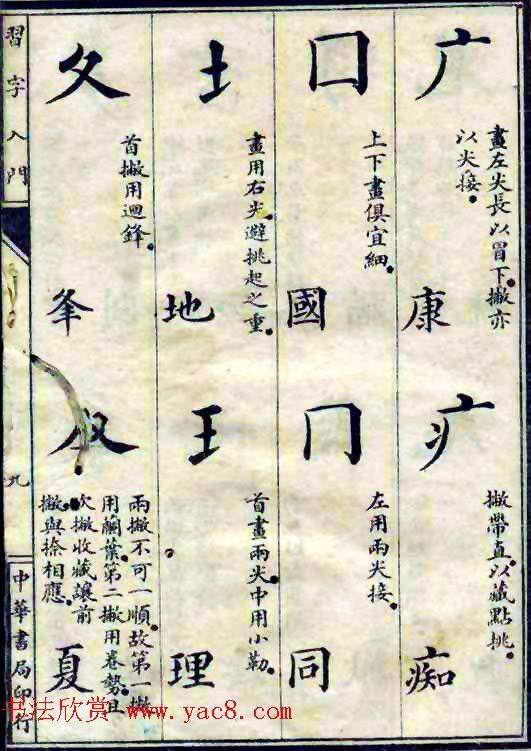 广
畫左尖長以冒下。撇亦
以尖接。
康
疒
撇帶直。以藏點挑。
痴
囗
上下畫俱宜細。
國
冂
左用兩尖接。
同
土
畫用右尖。避挑起之重。
地
王
首畫兩尖。中用小勒。
理
夂
首撇用迴鋒。
夆
兩撇不可一順。故第一撇
用蘭葉。第二撇用卷勢。且
次撇收藏讓前
撇。與捺相應。
夏
習字入門
九
中華書局印行
书法欣赏 www.yac8.com